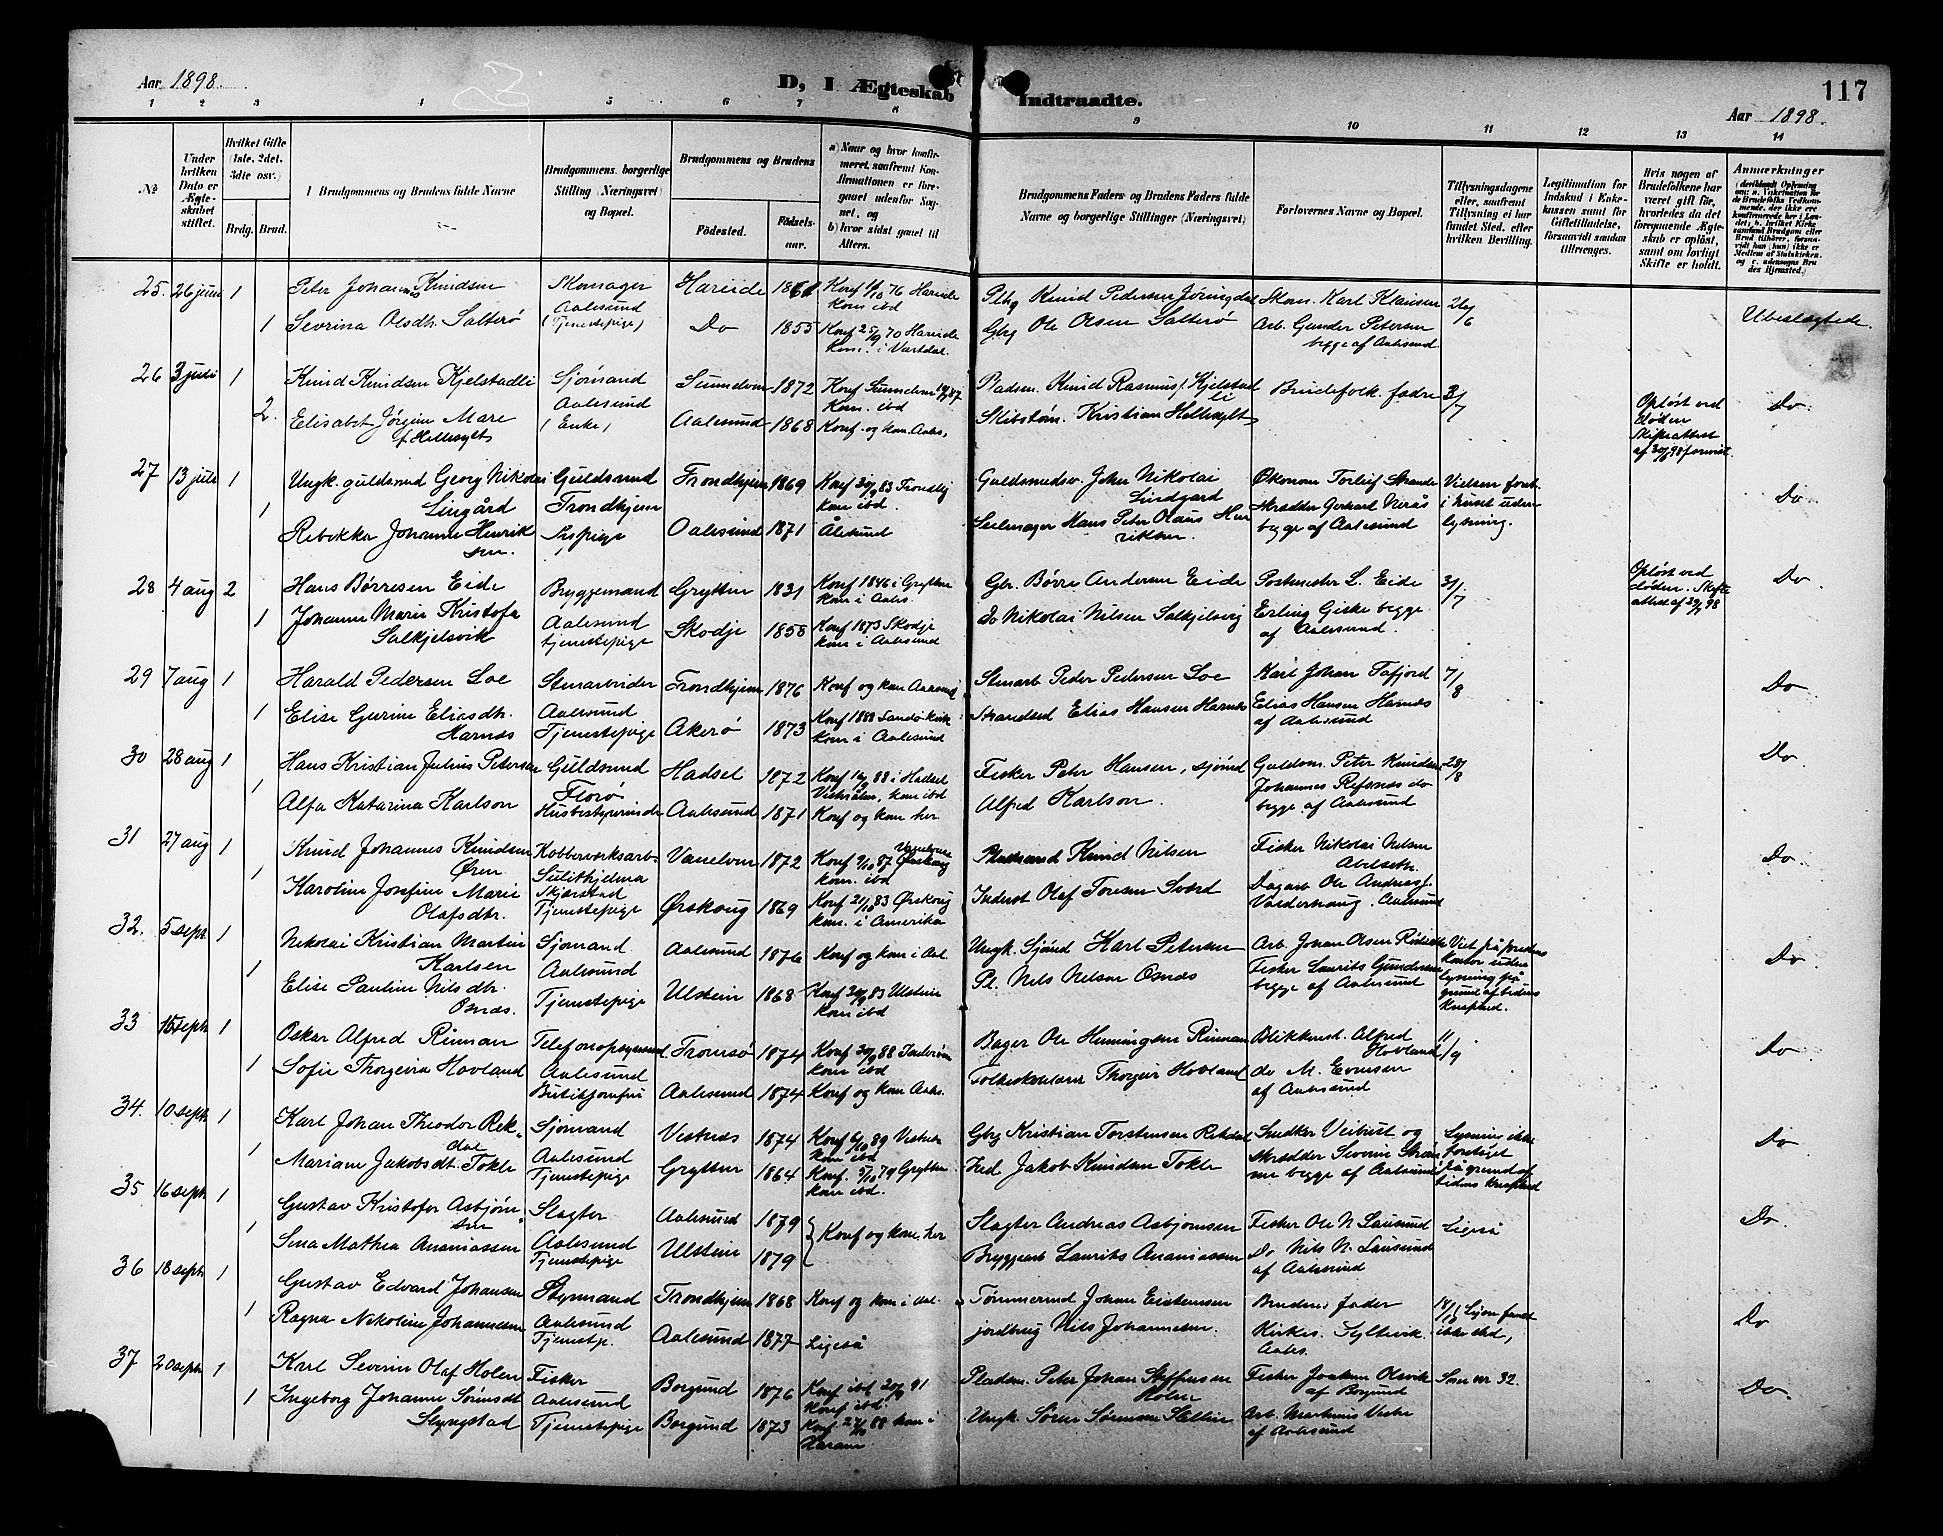 Aar 1898.
D, I Ægteskab Indtraadte.
117
Aar 1898.
1 2 3 4 5 6 7 8 9 10 11 12 13 14
№
Under hvilken Dato er Ægteskabet stiftet.
Hvilket Gifte (1ste, 2det, 3die osv.)
Brdg. Brud.
Brudgommens og Brudens fulde Navne
Brudgommens borgerlige Stilling (Næringsvei) og Bopæl.
Brudgommens og Brudens
Fødested. Fødselsaar.
a) Naar og hvor konfirmeret, saafremt Konfirmationen er foregaaet udenfor Sognet, og
b) hvor sidst gaaet til Alters.
Brudgommens Faders og Brudens Faders fulde Navne og borgerlige Stillinger (Næringsvei)
Forlovernes Navne og Bopæl.
Tillysningsdagene eller, saafremt Tillysning ei har fundet Sted, efter hvilken Bevilling.
Legitimation for Indskud i Enkekassen samt for Giftetilladelse, forsaavidt saadan tiltrænges.
Hvis nogen af Brudefolkene har været gift før, hvorledes da det foregaaende Ægteskab er opløst, samt om lovligt Skifte er holdt.
Anmærkninger
25. 26 juni 1 Peter Johannes Knudsen Skomager Aalesund Hareide 1861 Konf 1/10 76 Hareide kom ibd Pldg Knud Pedersen Skom. Karl Klausen 26/6
1 Sevrina Olsdtr. Salterø (Tjenestepige) Do 1855 Konf 25/9 70 Hareide kom. i Vartdal. Gbrg Ole Olsen Salterø Arb. Gunder Petersen begge af Aalesund Ubeslægtede.
26 3 juli 1 Knud Knudsen Kjelstadli Sjømand Aalesund Sunnelven 1872 Konf Sunnelven kom. ibd Pladsm. Knud Rasmuss. Kjelstadli Brudefolk. fædre 3/7
2. Elisabet Jørgine Mare f. Hellesylt (Enke) Aalesund 1868 Konf. og kom. Aales, Kristian Hellesylt Opløst ved døden Do.
27 13 juli 1 Ungk. guldsmd Georg Nikolai Lingård Guldsmed Trondhjem Trondhjem 1869 Konf 30/9 83 Trondhj kom ibd. Guldsmedsv. Johan Nikolai Lindgard Økonom Torleif Strande
1 Rebekka Johanne Henriksen. Sypige Aalesund 1871 Ålesund Seilmager Hans Peter Olaus Henriksen Skrædder Gerhard Nerås begge af Aalesund i huset uden lysning. Do
28 4 aug 2 Hans Børresen Eide Bryggemand Aalesund Grytten 1831 Konf 1846 i Grytten kom i Aales. Gbr. Børre Andersen Eide Postmester L. Eide 31/7 Opløst ved døden. Do
1 Johanne Marie Kristofa Solkjelsvik tjenestepige Skodje 1858 Konf 1873 Skodje kom i Aalesund do Nikolai Nilsen Solkjelsvig Erling Giske begge af Aalesund.
29 7 aug 1 Harald Pedersen Loe Stenarbeider Aalesund Trondhjem 1876 Konf og kom Aalesund Stenarb Peder Pedersen Loe Karl Johan Tafjord 7/8
1 Elise Gurine Eliasdtr. Harnæs Tjenestepige Akerø 1873 Konf 1888 Sandø kirke kom i Aalesund Strandsd Elias Hansen Harnæs Elias Hansen Harnæs af Aalesund Do
30 28 aug 1 Hans Kristian Julius Petersen Guldsmed Florø Hadsel 1872 88 i Hadsel kom ibd Fisker Peter Hansen, sjømd Guldsm. Peter Knudsen 28/8
1 Alfa Katarina Karlson Husbestyrerinde Aalesund 1871 Konf og kom her Alfred Karlson. Johannes Refsnæs do begge af Aalesund Do.
31 27 aug 1 Knud Johannes Knudsen Øren Kobberverksarb. Sulithjelma Skjerstad Vanelven 1872 Konf 9/10 87 Vanelven kom. ibd Pladsmd Knud Nilsen Fisker Nikolai Nilsen
1 Karoline Josefine Marie Olafsdtr. Tjenestepige Ørskoug 1869 Konf 21/10 83 Ørskoug kom. i Amerika Inderst Olaf Toresen Sværd Dagarb Ole Andreas J. Aalesund Do.
32. 5 sept 1 Nikolai Kristian Martin Karlsen Sjømand Aalesund Aalesund 1876 Konf og kom i Aal. Ungk. Sjømd Karl Petersen Arb. Johan Olsen
1 Elise Pauline Nilsdtr. Osnæs. Tjenestepige Ulstein 1868 Konf 30/9 83 Ulstein kom ibd Pl. Nils Nilsen Osnæs Fisker Laurits Gundersen begge af Aalesund Viet på kontor uden lysning på grund af tidens knaphed. Do
33 15 sept 1 Oskar Alfred Rinnan Aalesund Tromsø 1874 Konf 30/9 88 Inderøen kom ibd Bager Ole Henningsen Rinnan Blikkensl. Alfred Hovland 11/9
1 Sofie Thorgeira Hovland Butikjomfru Aalesund 1874 Konf og kom Aales. Thorgeir Hovland do M. Evensen af Aalesund Do
34. 10 sept 1 Karl Johan Theodor Rekdal Sjømand Aalesund Vestnes 1874 Konf 6/10 89 Vestnes kom ibd Gbrg Kristian Torstensen Rekdal Snedker Veibust og
1 Mariane Jakobsdt. Tokle Tjenestepige Grytten 1864 Konf. 5/10 79 Grytten kom ibd. Jakob Knudsen Tokle skrædder Severin begge af Aalesund Lysning ikke foretaget på grund af tidens knaphed Do
35 16 sept 1 Gustav Kristofer Asbjørnsen Slagter Aalesund Aalesund 1879 Konf og kom. her Slagter Andreas Asbjørnsen Fisker Ole N. Lausund Ligeså
1 Sina Mathea Ananiassen Tjenestepige Ulstein 1879 Bryggearb Laurits Ananiassen Do Nils N. Lausund af Aalesund Do.
36 18 sept 1 Gustav Edvard Johansen Styrmand Aalesund Trondhjem 1868 Konf og kom i Aal. Tømmermd Johan Eistensen Brudens fader 18/9
1 Ragna Nikoline Johannesen Tjenestp. Aalesund 1877 Ligeså jordbrug Nils Johannesen. Kirkes. Syltevik. Aales. Do
37 20 sept 1 Karl Severin Olaf Holen Fisker Aalesund Borgund 1876 Konf ibd 20/9 91 Pladsm. Peter Johan Steffensen Holen Fisker Joakim Olsvik af Borgund Som nr 32.
1 Ingeborg Johanne Sørnsdt Slyngstad Tjenestepige Borgund 1873 88 kom i Haram Ungk. Søren Sørensen Arb. Martinus af Aalesund Do.